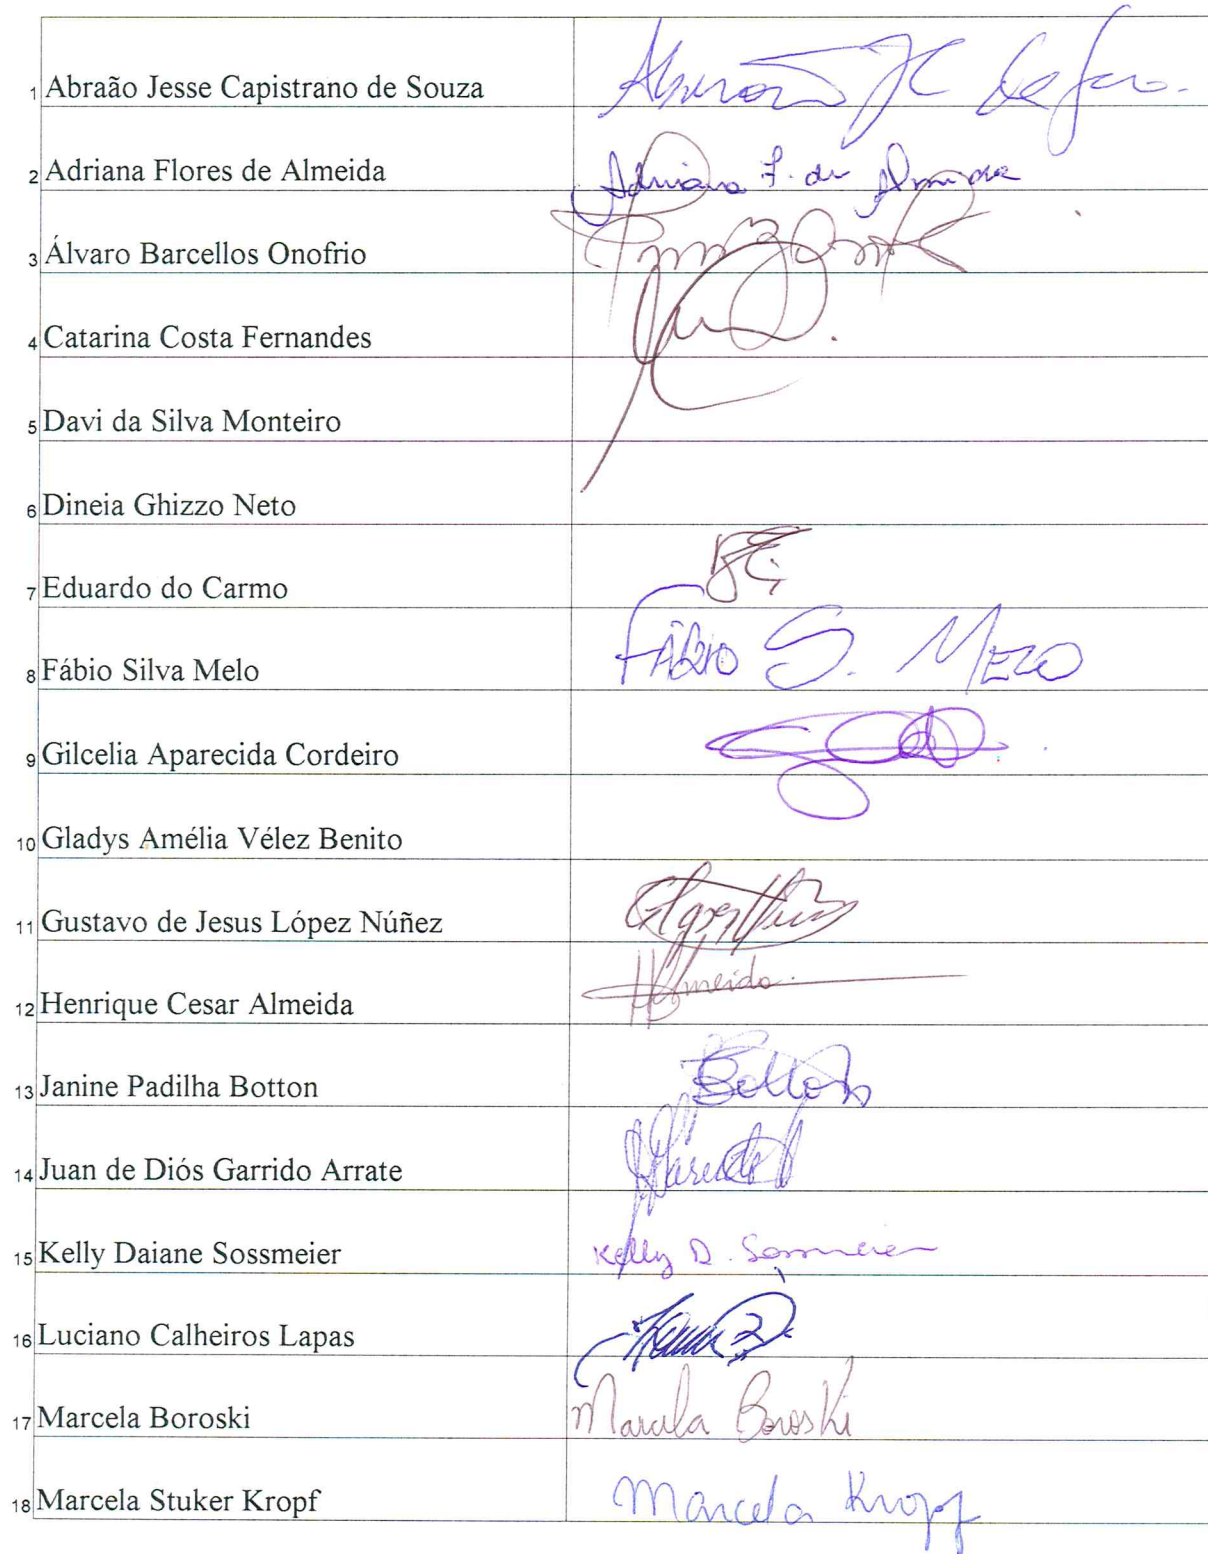 1 Abraão Jesse Capistrano de Souza
2 Adriana Flores de Almeida Adriana F. de Almeida
3 Álvaro Barcellos Onofrio
4 Catarina Costa Fernandes
5 Davi da Silva Monteiro
6 Dineia Ghizzo Neto
7 Eduardo do Carmo
8 Fábio Silva Melo FÁBIO S. MELO
9 Gilcelia Aparecida Cordeiro
10 Gladys Amélia Vélez Benito
11 Gustavo de Jesus López Núñez
12 Henrique Cesar Almeida HAlmeida
13 Janine Padilha Botton Botton
14 Juan de Diós Garrido Arrate
15 Kelly Daiane Sossmeier Kelly D. Sossmeier
16 Luciano Calheiros Lapas
17 Marcela Boroski Marcela Boroski
18 Marcela Stuker Kropf Marcela Kropf